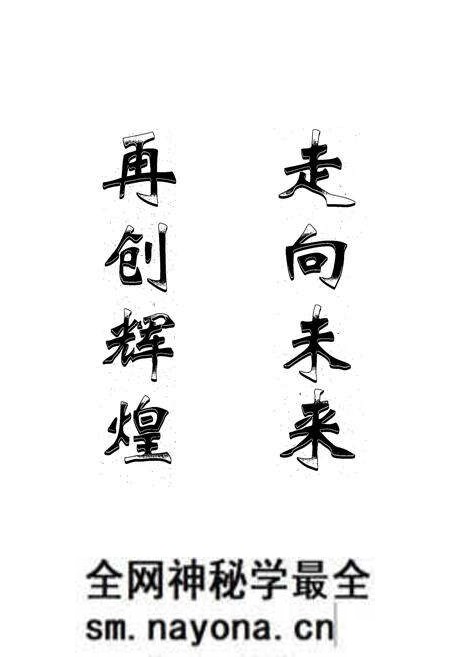 走向未来
再创辉煌
全网神秘学最全
sm.nayona.cn